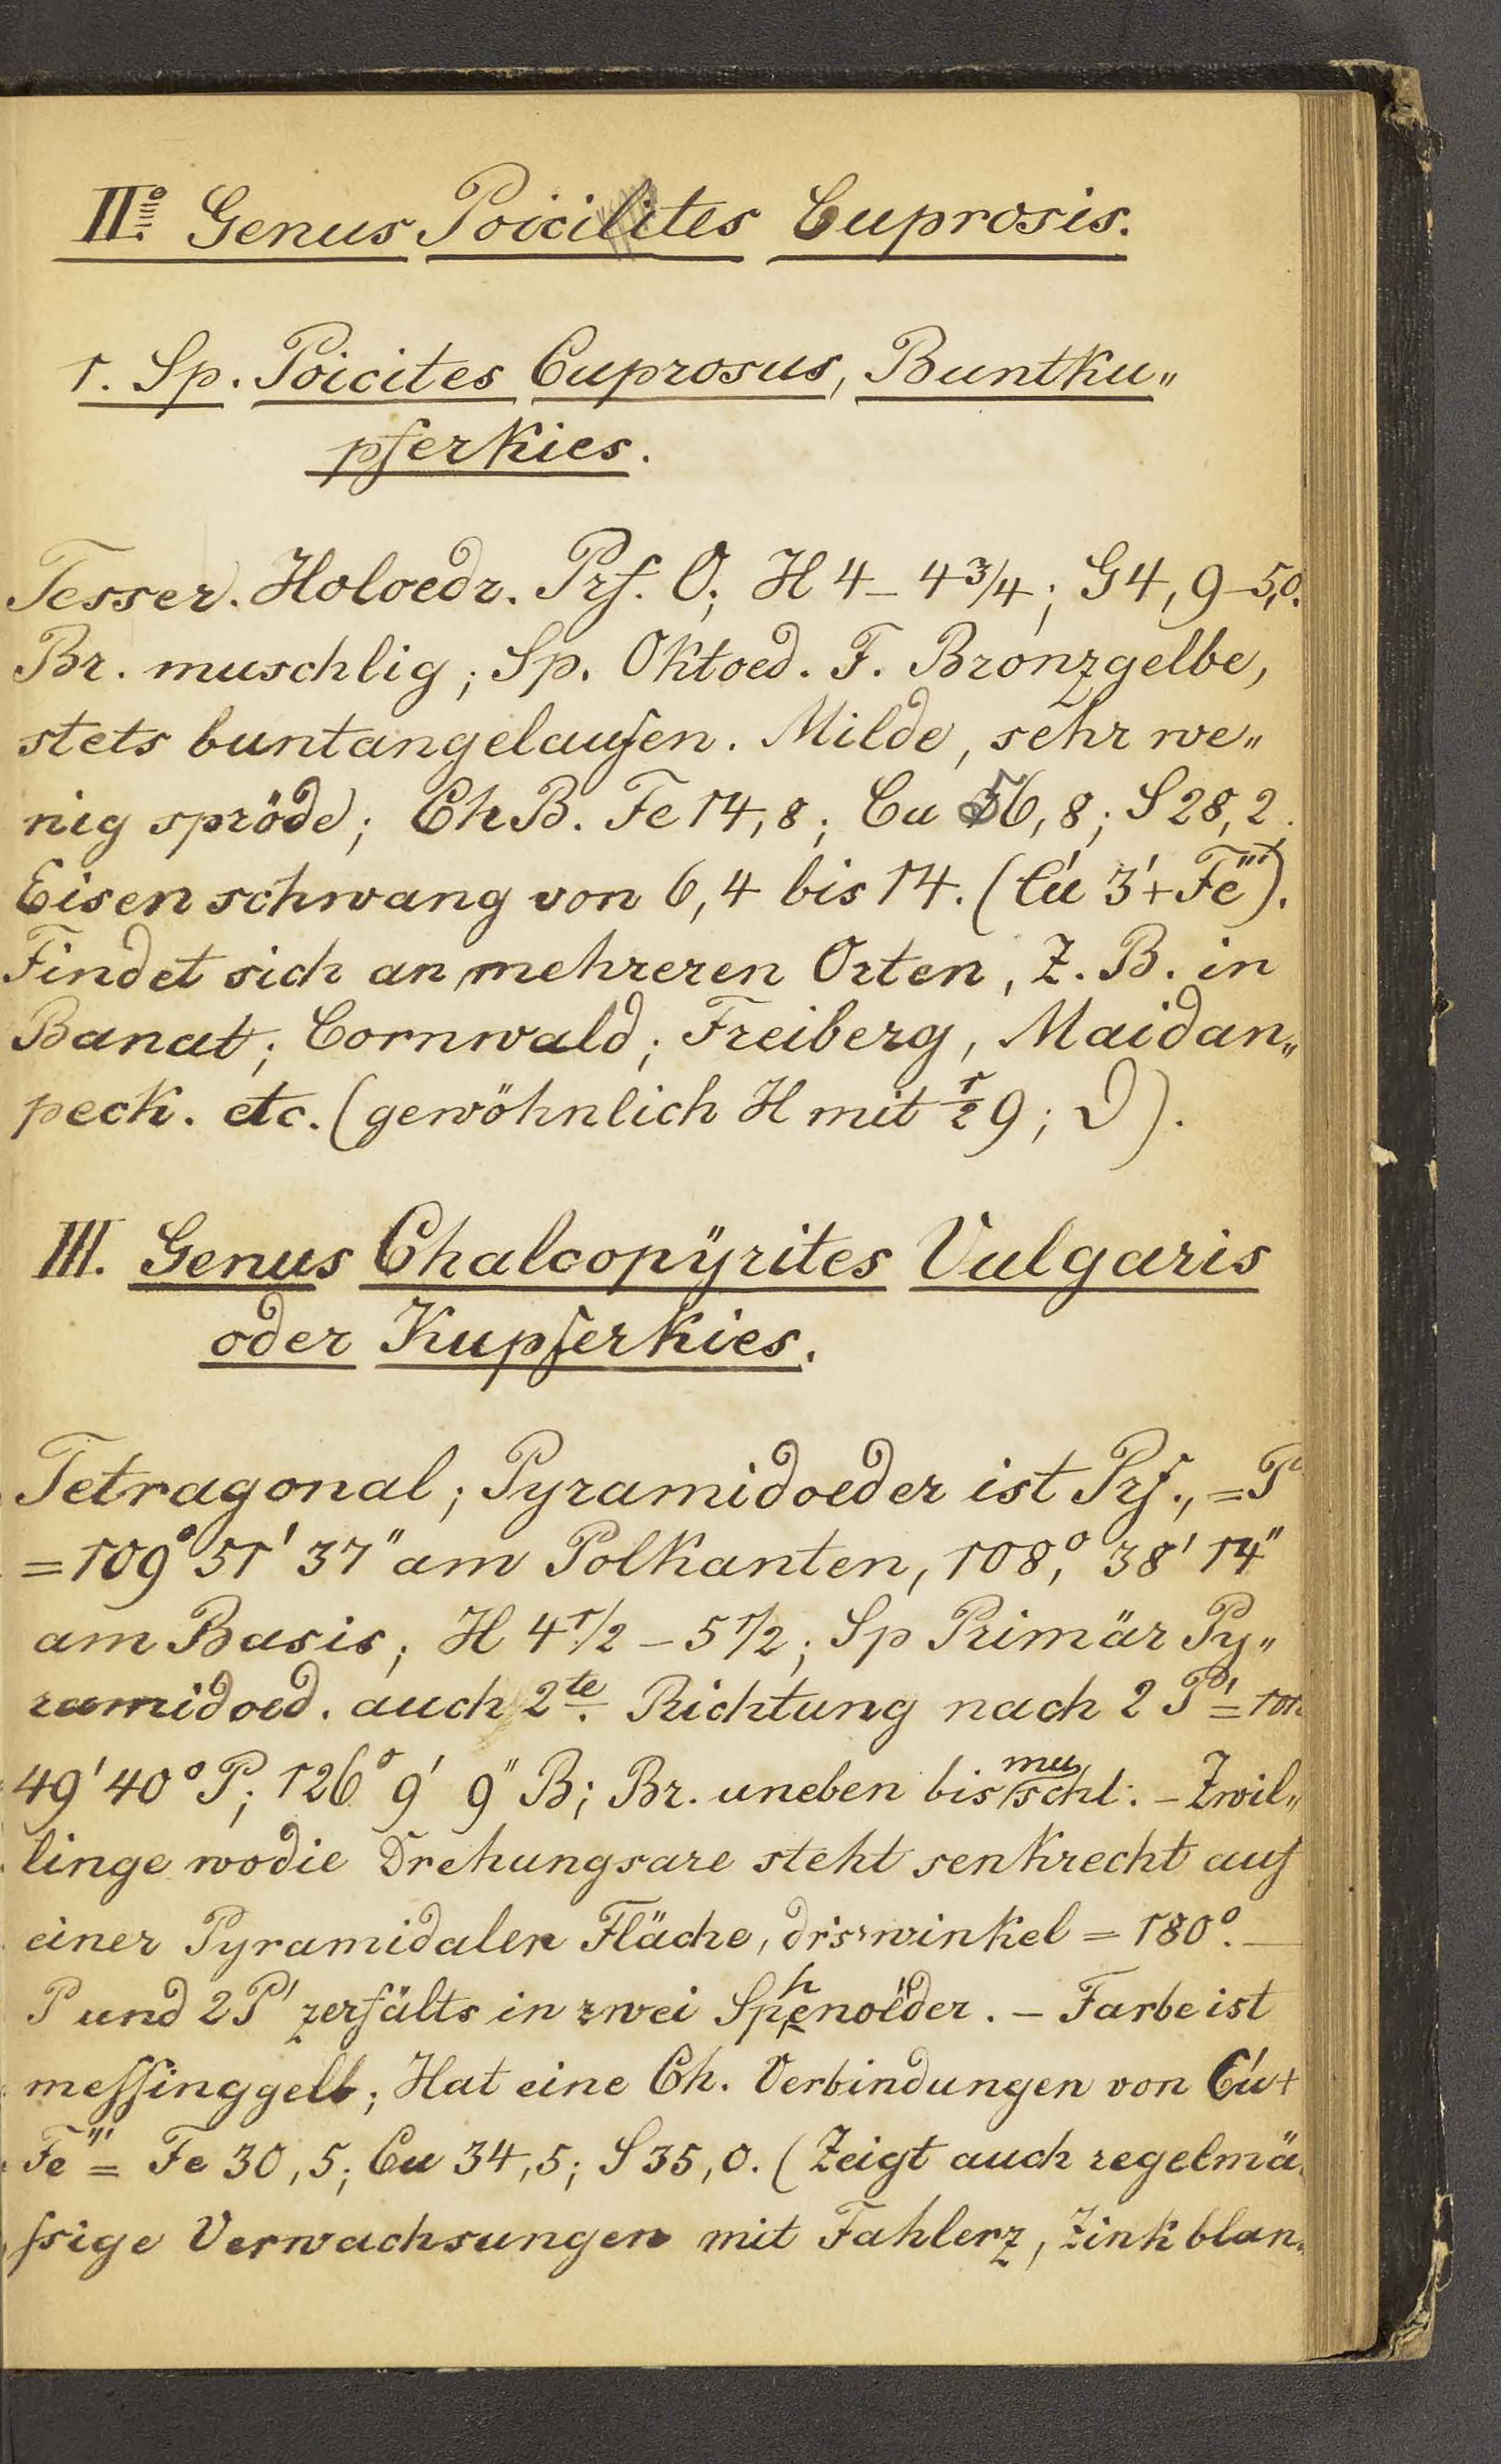 IIº Genus Poicilites Cuprosis.
1. Sp. Poicites Cuprosus, Buntku„
pferkies.
Tesser. Holoedr. Prf. O; H 4 – 4 3/4; G 4,9–5,0.
Br. muschlig; Sp. Oktoed. F. Bronzgelbe,
stets buntangelaufen. Milde, sehr we„
nig spröde; Ch B. Fe 14,8; Cu 56,8; S 28,2.
Eisen schwang von 6,4 bis 14. (Cu' 3'+Fe''').
Findet sich an mehreren Orten, Z. B. in
Banat; Cornwald; Freiberg, Maidan„
peck. etc. (gewöhnlich H mit 1/2 9; D).
III. Genus Chalcopÿrites Vulgaris
oder Kupferkies.
Tetragonal; Pyramidoeder ist Prf., = P
= 109° 51' 37" am Polkanten, 108,° 38' 14"
am Basis; H 4 1/2 – 5 1/2; Sp Primär Py„
ramidoed. auch 2te. Richtung nach 2 P' =
49' 40° P; 126° 9' 9" B; Br. uneben bis muschl: – Zwil„
linge wodie Drehungsaxe steht senkrecht auf
einer Pyramidalen Fläche, drswinkel = 180°. —
P und 2P' zerfälts in zwei Sphenoïder. – Farbe ist
meſſinggelb; Hat eine Ch. Verbindungen von Cu'+
Fe''' = Fe 30,5; Cu 34,5; S 35,0. (Zeigt auch regelmä„
ſsige Verwachsungen mit Fahlerz, Zinkblan„